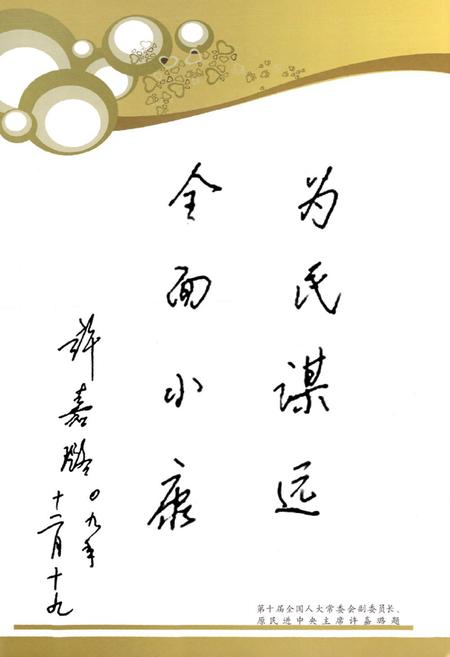 为民谋远
全面小康
许嘉璐
〇九年
十二月十九
第十届全国人大常委会副委员长、
原民进中央主席许嘉璐题